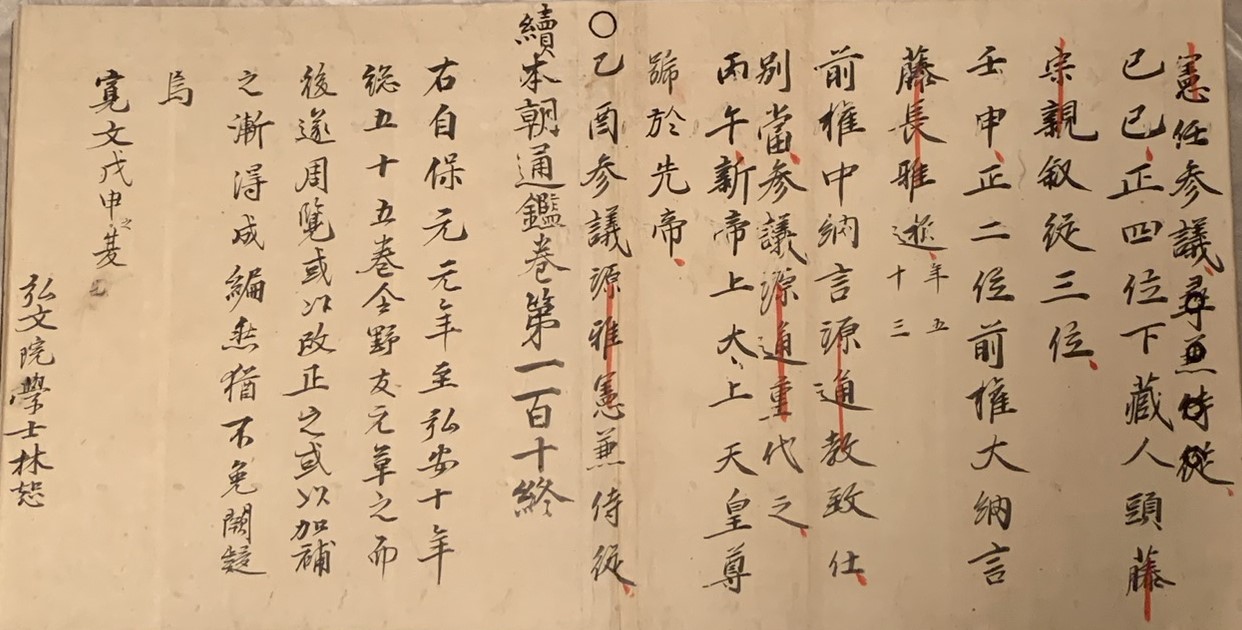 憲任参議尋兼侍従
己巳正四位下藏人頭藤
宗親叙従三位
壬申正二位前権大納言
藤長雅逝年五十三
前権中納言源通教致仕
別當参議源通重代之
丙午新帝上太上天皇尊
號於先帝
○乙酉参議源雅憲兼侍従
續本朝通鑑巻第一百十終
右自保元元年至弘安十年
総五十五巻令野友元草之而
後遂周覽或以改正之或以加補
之漸得成編然猶不免闕疑
焉
寛文戊申之夏
弘文院學士林恕